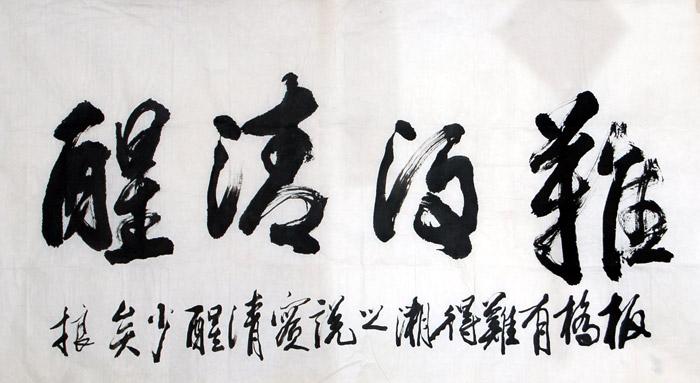 難得清醒
板橋有難得之說實清醒少矣